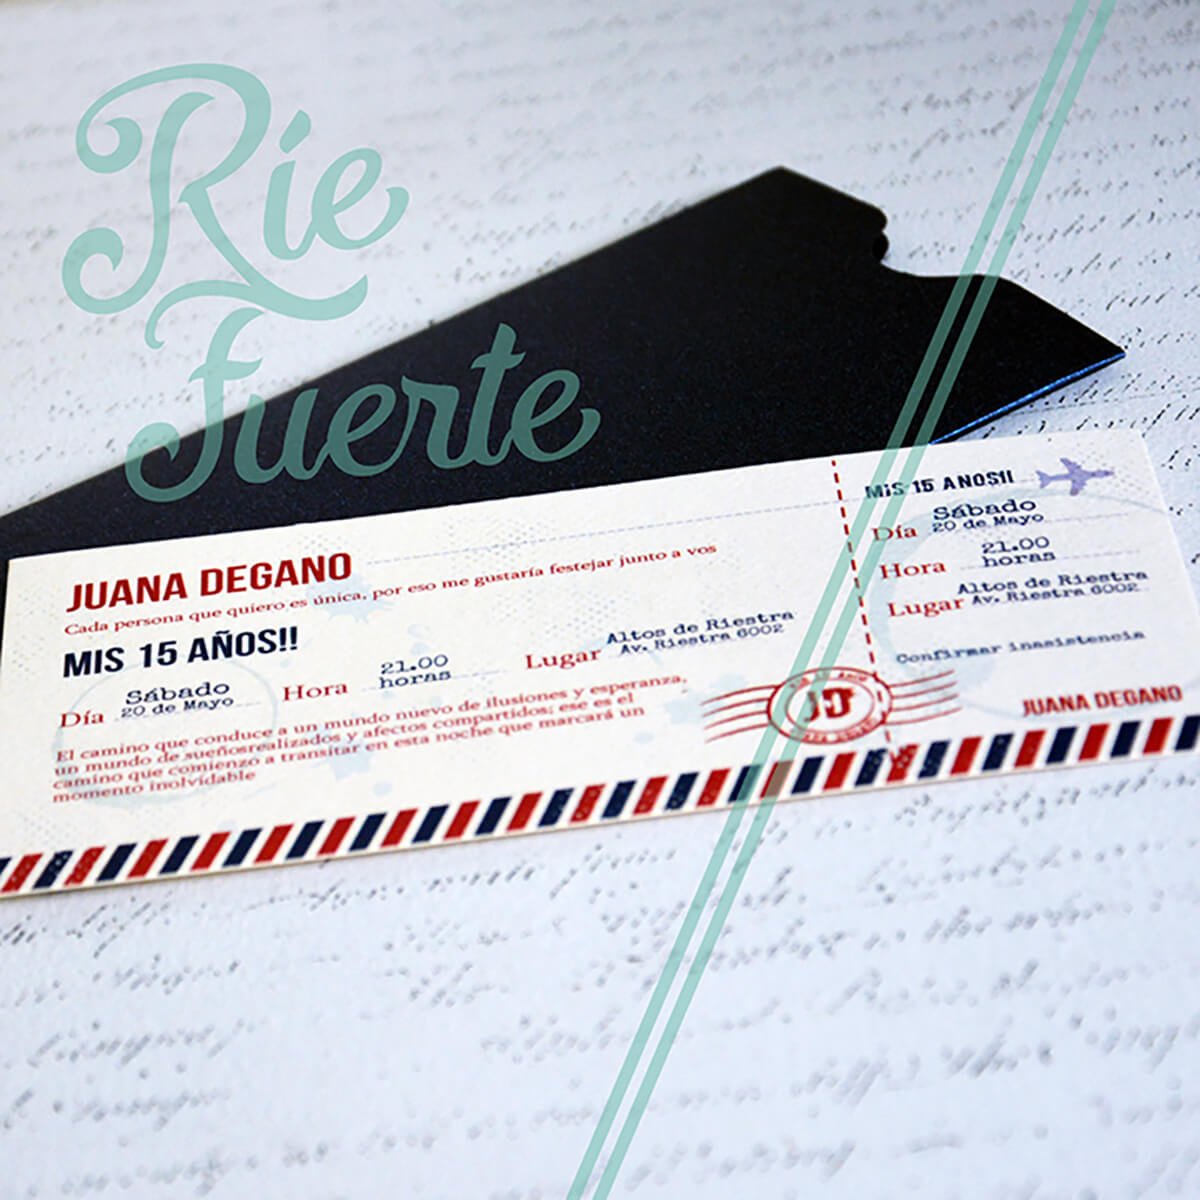 Rie
Fuerte
JUANA DEGANO
Cada persona que quiero es única, por eso me gustaría festejar junto a vos
MIS 15 AÑOS!!
Día Sábado 20 de Mayo Hora 21.00 horas Lugar Altos de Riestra Av. Riestra 6002
El camino que conduce a un mundo nuevo de ilusiones y esperanza,
un mundo de sueñosrealizados y afectos compartidos; ese es el
camino que comienzo a transitar en esta noche que marcará un
momento inolvidable
MIS 15 AÑOS!!
Día Sábado
20 de Mayo
Hora 21.00
horas
Lugar Altos de Riestra
Av. Riestra 6002
Confirmar inasistencia
JUANA DEGANO